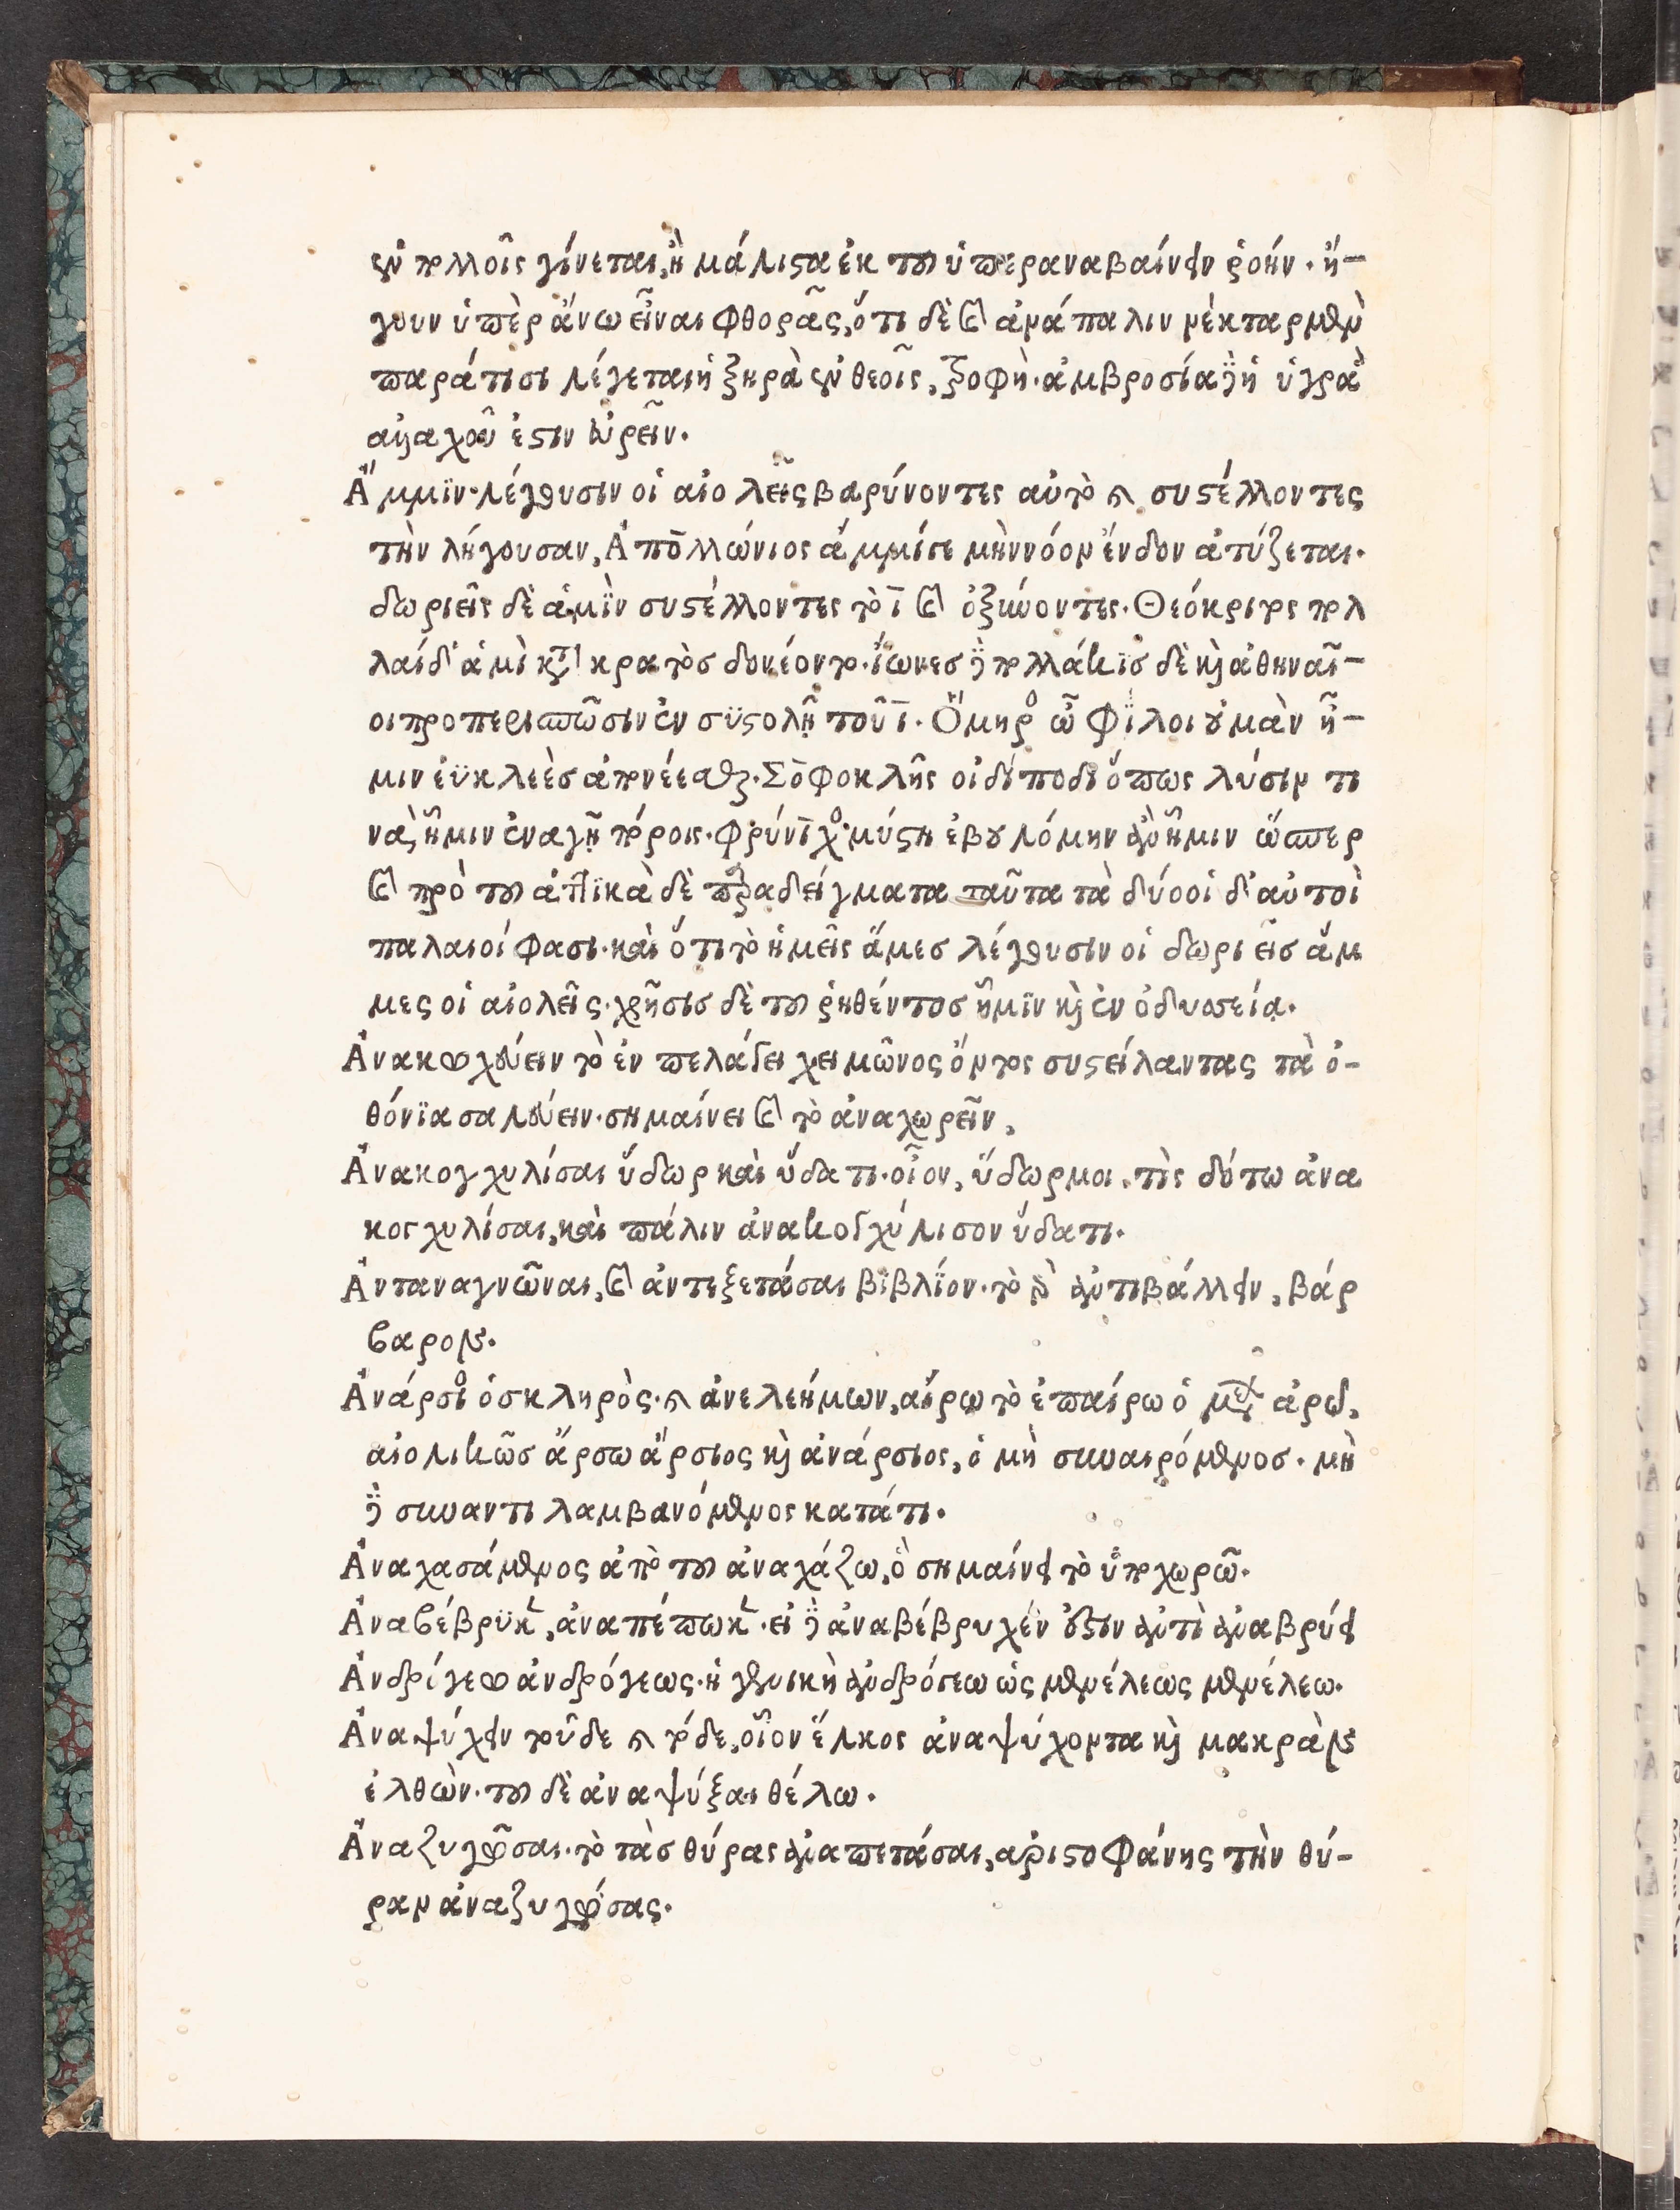 ἐν πολλοῖς γίνεται, ἢ μάλιστα ἐκ τοῦ ὑπεραναβαίνειν ῥοήν. ἤ-
γουν ὑπὲρ ἄνω εἶναι φθορᾶς, ὅτι δὲ καὶ ἀνάπαλιν νέκταρ μὲν
παρά τισι λέγεται ἡ ξηρὰ ἐν θεοῖς, τροφὴ. ἀμβροσία δὲ ἡ ὑγρὰ
ἀλλαχοῦ ἔστιν εὑρεῖν.
Ἄμμϊν. λέγουσιν οἱ αἰολεῖς βαρύνοντες αὐτὸ καὶ συστέλλοντες
τὴν λήγουσαν, Ἀπολλώνιος ἄμμί γε μὴν νόον ἔνδον ἀτύζεται.
δωριεῖς δὲ ἁμῒν συστέλλοντες τὸ ῑ καὶ ὀξύνοντες. Θεόκριτος πολ
λαὶ δ' ἁμὶ κατὰ κρατὸσ δονέοντο. ἴωνεσ δὲ πολλάκϊσ δὲ καὶ ἀθηναῖ-
οι προπερισπῶσιν ἐν συστολῇ τοῦ ῑ. Ὅμηρος ὦ φίλοι οὐ μὰν ἧ-
μιν ἐϋκλεὲσ ἀπονέεσθαι. Σοφοκλῆς οἰδίποδι ὅπως λύσιν τι
νὰ, ἧμιν ἐναγῆ πόροις. φρύνιχος. μύστη ἐβουλόμην ἂν ἧμιν ὥσπερ
καὶ πρὸ τοῦ ἀττικὰ δὲ παραδείγματα ταῦτα τὰ δύο οἱ δ' αὐτοὶ
παλαιοί φασι. καὶ ὅτι τὸ ἡμεῖς ἅμεσ λέγουσιν οἱ δωριεῖσ ἄμ
μες οἱ αἰολεῖς. χρῆσισ δὲ τοῦ ῥηθέντοσ ἧμϊν καὶ ἐν ὀδυσσείᾳ.
Ἀνακωχεύειν τὸ ἐν πελάγει χειμῶνος ὄντος συστείλαντας τὰ ὀ-
θόνϊα σαλεύειν. σημαίνει καὶ τὸ ἀναχωρεῖν,
Ἀνακογχυλίσαι ὕδωρ καὶ ὕδατι. οἷον, ὕδωρ μοι, τὶς δότω ἀνα
κογχυλίσαι, καὶ πάλιν ἀνακογχύλισον ὕδατι.
Ἀνταναγνῶναι, καὶ ἀντεξετάσαι βϊβλίον. τὸ γὰρ ἀντιβάλλειν, βάρ
βαρον.
Ἀνάρσιος ὁ σκληρὸς. καὶ ἀνελεήμων, αἴρω τὸ ἐπαίρω ὁ μέλλων ἀρῶ,
αἰολικῶσ ἄρσω ἄρσιος καὶ ἀνάρσιος, ὁ μὴ συναιρόμενοσ. μὴ
δὲ συναντιλαμβανόμενος κατά τι.
Ἀναχασάμενος ἀπὸ τοῦ ἀναχάζω, ὃ σημαίνει τὸ ὑποχωρῶ.
Ἀναβέβρϋκε, ἀναπέπωκε. εἰ δὲ ἀναβέβρυχέν ἐστιν ἀντὶ ἀναβρύει
Ἀνδρόγεω ἀνδρόγεως. ἡ γενικὴ ἀνδρόγεω ὡς μενέλεως μενέλεω.
Ἀναψύχειν τοῦδε καὶ τόδε, οἷον ἕλκος ἀναψύχοντα καὶ μακρὰν
ἐλθὼν. τοῦ δὲ ἀναψύξαι θέλω.
Ἀναζυγῶσαι. τὸ τὰσ θύρας ἀναπετάσαι, ἀριστοφάνης τὴν θύ-
ραν ἀναζυγώσας.